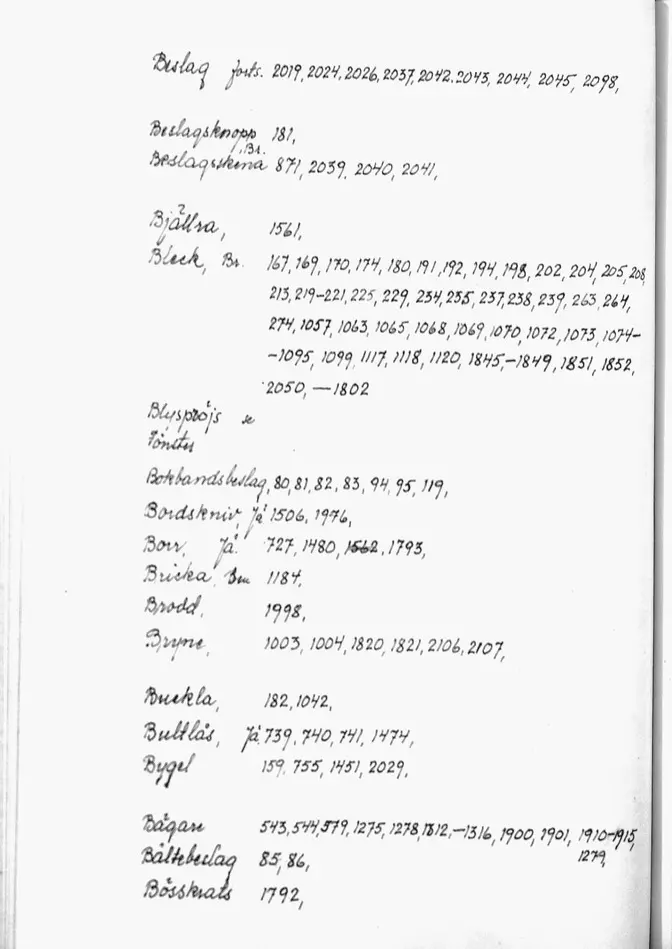 Beslag forts. 2019, 2024, 2026, 2037, 2042, 2043, 2044, 2045, 2098,
Beslagsknopp 181,
Beslagsskena Br. 871, 2039, 2040, 2041,
Bjällra, 1561,
Bleck, Br. 167, 169, 170, 174, 180, 191, 192, 194, 198, 202, 204, 205, 208,
213, 219-221, 225, 229, 234, 235, 237, 238, 239, 263, 264,
274, 1057, 1063, 1065, 1068, 1069, 1070, 1072, 1073, 1074-
-1095, 1099, 1117, 1118, 1120, 1845,-1849, 1851, 1852,
2050, —1802
Blyspröjs se
Fönster
Bokbandsbeslag, 80, 81, 82, 83, 94, 95, 119,
Bordskniv, Jä 1506, 1976,
Borr, Jä. 727, 1480, 1562, 1793,
Bricka, 1184,
Brodd, 1998,
Bryne, 1003, 1004, 1820, 1821, 2106, 2107,
Buckla, 182, 1042,
Bultlås, Jä. 739, 740, 741, 1474,
Bygel 159, 755, 1451, 2029,
Bägare 543, 544, 579, 1275, 1278, 1312,-1316, 1900, 1901, 1910-1915,
1279,
Bältebeslag 85, 86,
Bösskrats 1792,